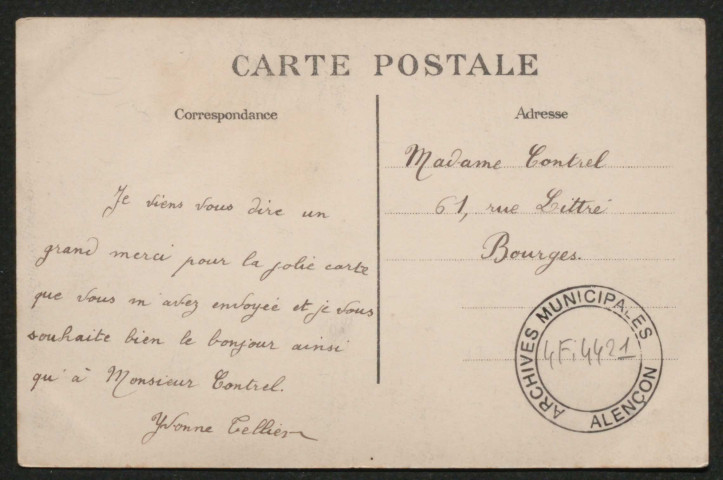 CARTE POSTALE
Correspondance
Je viens vous dire un
grand merci pour la jolie carte
que vous m'avez envoyée et je vous
souhaite bien le bonjour ainsi
qu'à Monsieur Contrel.
Yvonne Tellier
Adresse
Madame Contrel
61, rue Littré
Bourges.
ARCHIVES MUNICIPALES
4Fi4421
ALENÇON